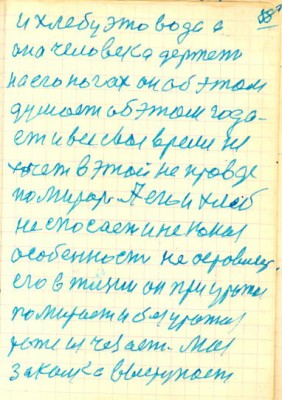 и хлебу это вода а
она человека держет
на его ногах он об этом
думает об этом гада-
ет и все свое время не
хочет в этой не правде
помирать. А ень и хлеб
не спасает и не какая
особенность не оставит
его в жизни он при урожаи
помирает и без урожая
тоже исчезает. Моя
закалка выступает